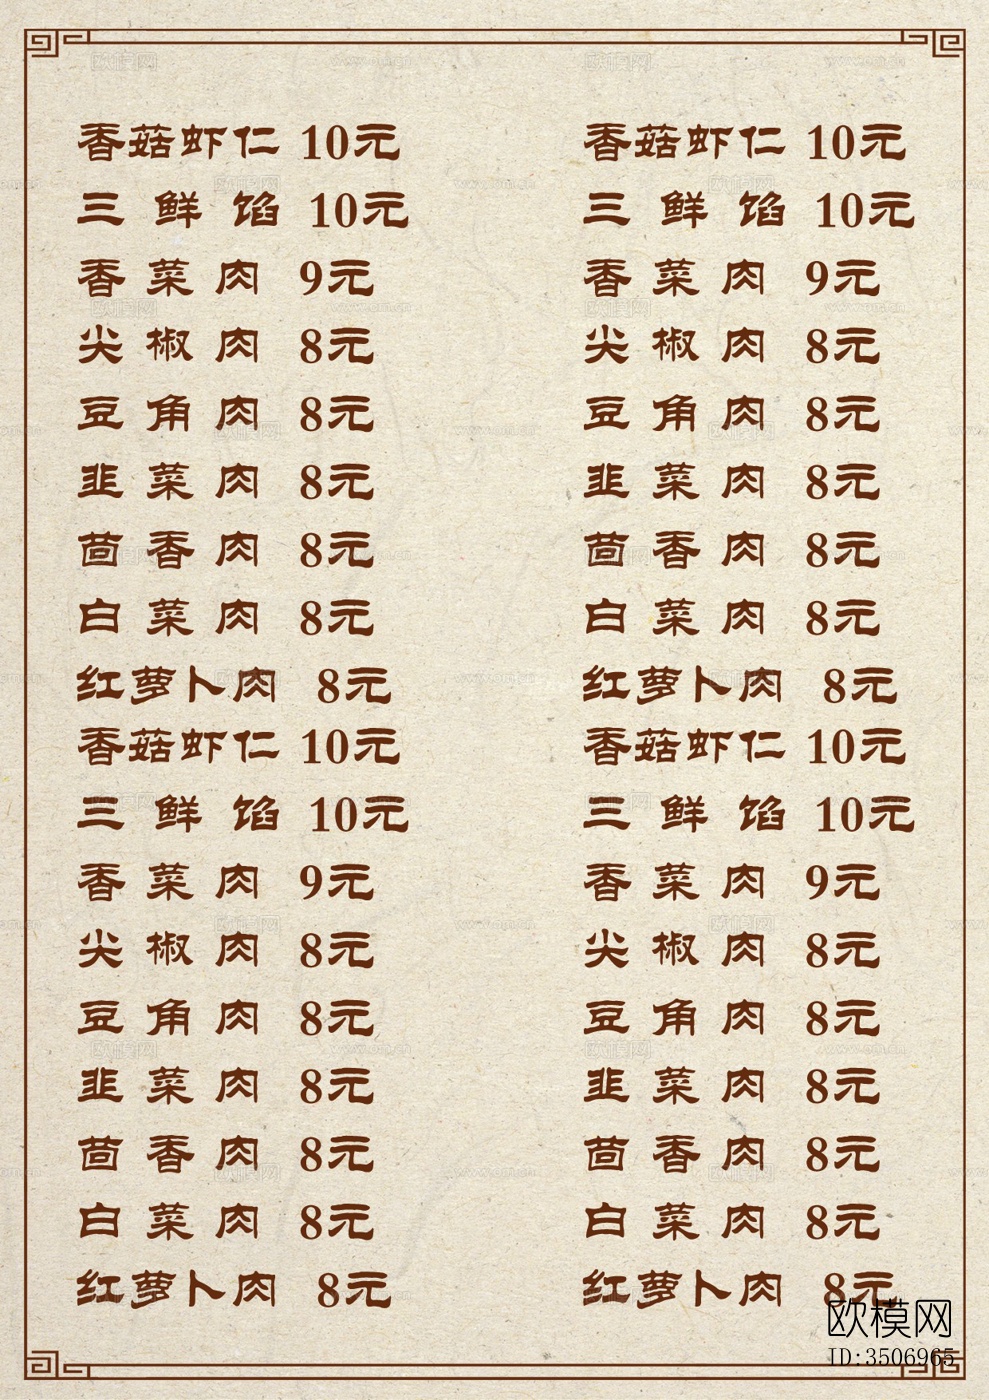 香菇虾仁 10元
三鲜馅 10元
香菜肉 9元
尖椒肉 8元
豆角肉 8元
韭菜肉 8元
茴香肉 8元
白菜肉 8元
红萝卜肉 8元
香菇虾仁 10元
三鲜馅 10元
香菜肉 9元
尖椒肉 8元
豆角肉 8元
韭菜肉 8元
茴香肉 8元
白菜肉 8元
红萝卜肉 8元
香菇虾仁 10元
三鲜馅 10元
香菜肉 9元
尖椒肉 8元
豆角肉 8元
韭菜肉 8元
茴香肉 8元
白菜肉 8元
红萝卜肉 8元
香菇虾仁 10元
三鲜馅 10元
香菜肉 9元
尖椒肉 8元
豆角肉 8元
韭菜肉 8元
茴香肉 8元
白菜肉 8元
红萝卜肉 8元
欧模网
ID:3506965